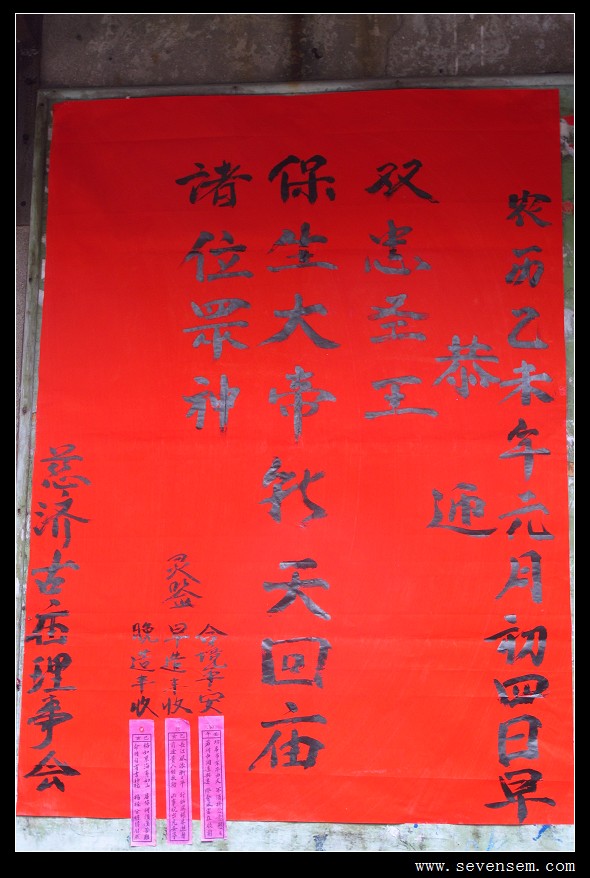 农历乙未年元月初四日早
恭迎
双忠圣王
保生大帝 天回庙
諸位眾神
合境平安
灵鉴
早造丰收
晚造丰收
慈济古庙理事会
www.sevensem.com